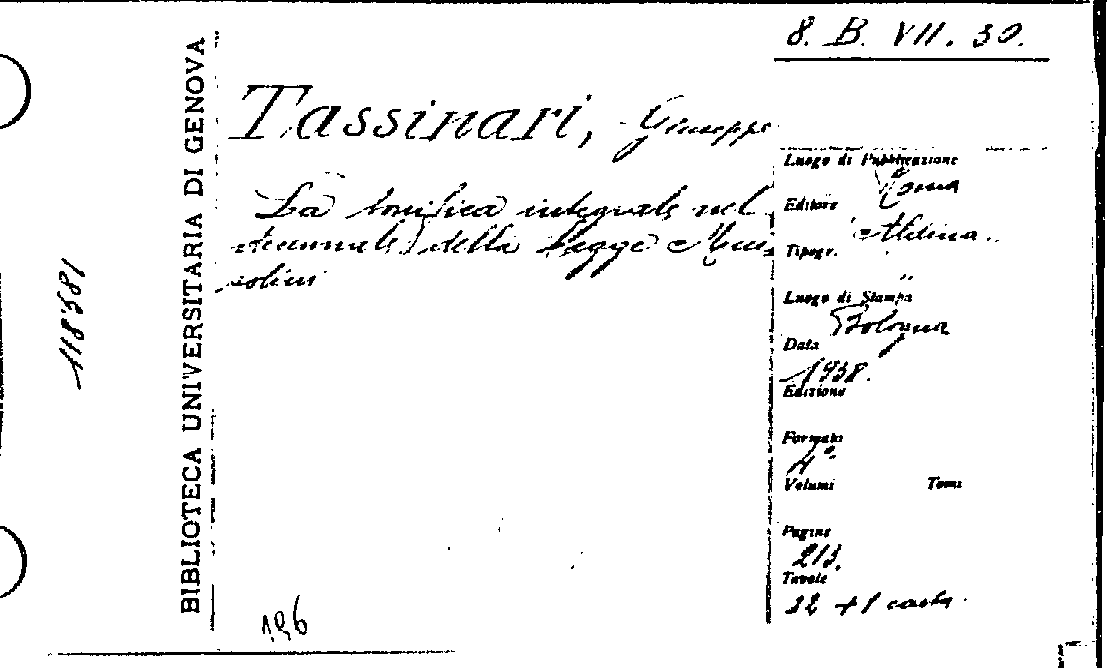 8. B. VII. 30.
BIBLIOTECA UNIVERSITARIA DI GENOVA
118381
Tassinari, Giuseppe
La bonifica integrale nel
decennale della Legge Mus
solini
Luogo di Pubblicazione
Roma
Editore
Aldina.
Tipogr.
Luogo di Stampa
Bologna
Data
1938.
Edizione
Formato
4°
Volumi Tomi
Pagine
213.
Tavole
22 + 1 carta.
196